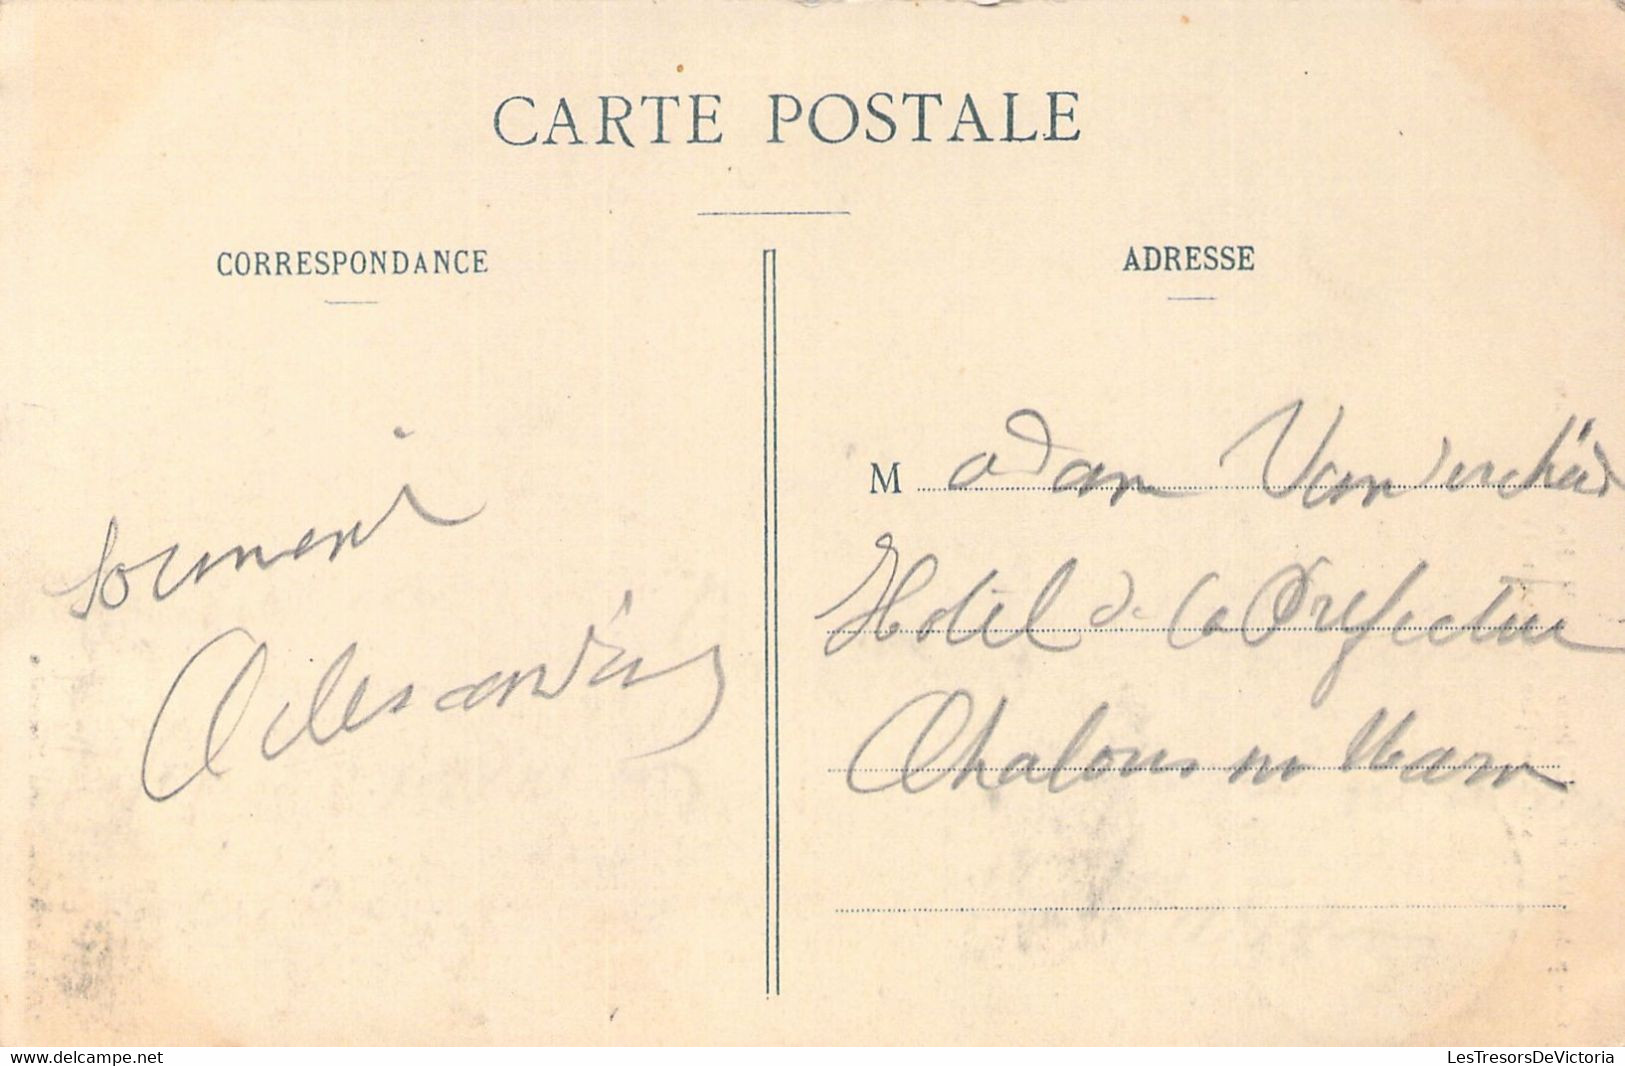 CARTE POSTALE
CORRESPONDANCE
ADRESSE
Souvenir
Madam Vanderchéid
Hotel de la Préfecture
Chalons sur Marn
www.delcampe.net
LesTresorsDeVictoria